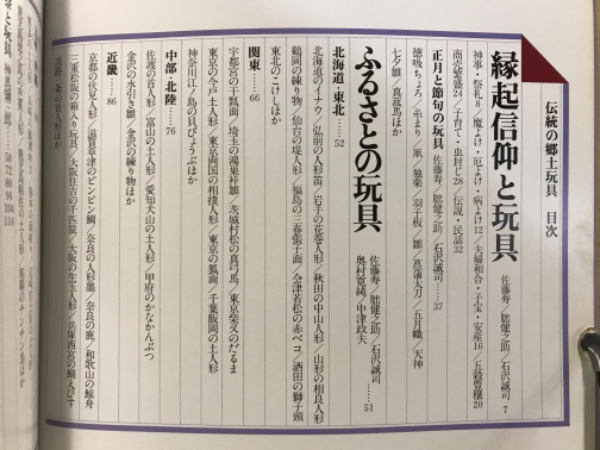 伝統の郷土玩具 目次
縁起信仰と玩具 佐藤寿/䑓健之助/石沢誠司 7
神事・祭礼8/魔よけ・厄よけ・病よけ12/夫婦和合・子宝・安産16/五穀豊穣20
商売繁盛24/子育て・虫封じ28/伝説・民話32
正月と節句の玩具 佐藤寿/䑓健之助/石沢誠司……37
徳島ちょろ/糸まり/凧/独楽/羽子板/雛/菖蒲太刀/五月幟/天神
七夕雛/真菰馬ほか
ふるさとの玩具 佐藤寿/䑓健之助/石沢誠司
奥村寛純/中津政夫 ……51
北海道・東北……52
北海道のイナウ/弘前の人形笛/岩手の花巻人形/秋田の中山人形/山形の相良人形
鶴岡の練り物/仙台の堤人形/福島の三春張子面/会津若松の赤ベコ/酒田の獅子頭
東北のこけしほか
関東……66
宇都宮の干瓢面/埼玉の鴻巣裃雛/茨城村松の真弓馬/東京柴又のだるま
東京の今戸土人形/東京両国の相撲人形/東京の狐面/千葉飯岡の土人形
神奈川江ノ島の貝びょうぶほか
中部・北陸……76
佐渡の首人形/富山の土人形/愛知犬山の土人形/甲府のかなかんぶつ
金沢の水引き雛/金沢の練り物ほか
近畿……86
京都の伏見人形/滋賀草津のピンピン鯛/奈良の人形墨/奈良の鹿/和歌山の鯨舟
三重松阪の箱入り玩具/大阪住吉の千匹猿/大阪の生土人形/兵庫西宮の鯛えびす